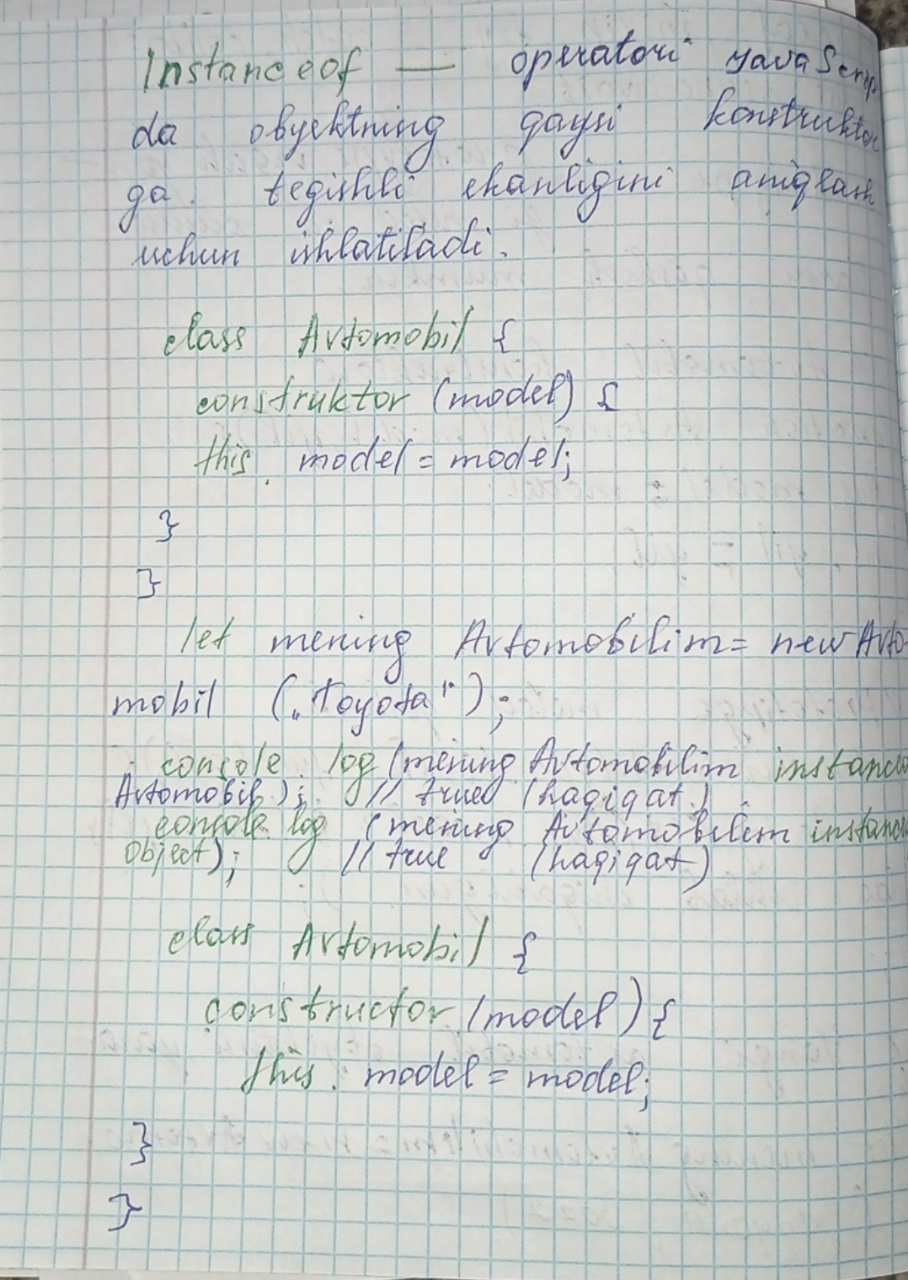 Instanceof — operatori YavaScrip
da obyektning qaysi konstrukto
ga tegishli ekanligini aniqlash
uchun ishlatiladi.
class Avtomobil {
construktor (model) {
this. model = model;
}
}
let mening Avtomobilim = new Avto-
mobil („Toyota");
console. log (mening Avtomobilim instance
Avtomobil); // true (haqiqat)
console. log (mening Avtomobilim instance
Object); // true (haqiqat)
class Avtomobil {
constructor (model) {
this. model = model;
}
}